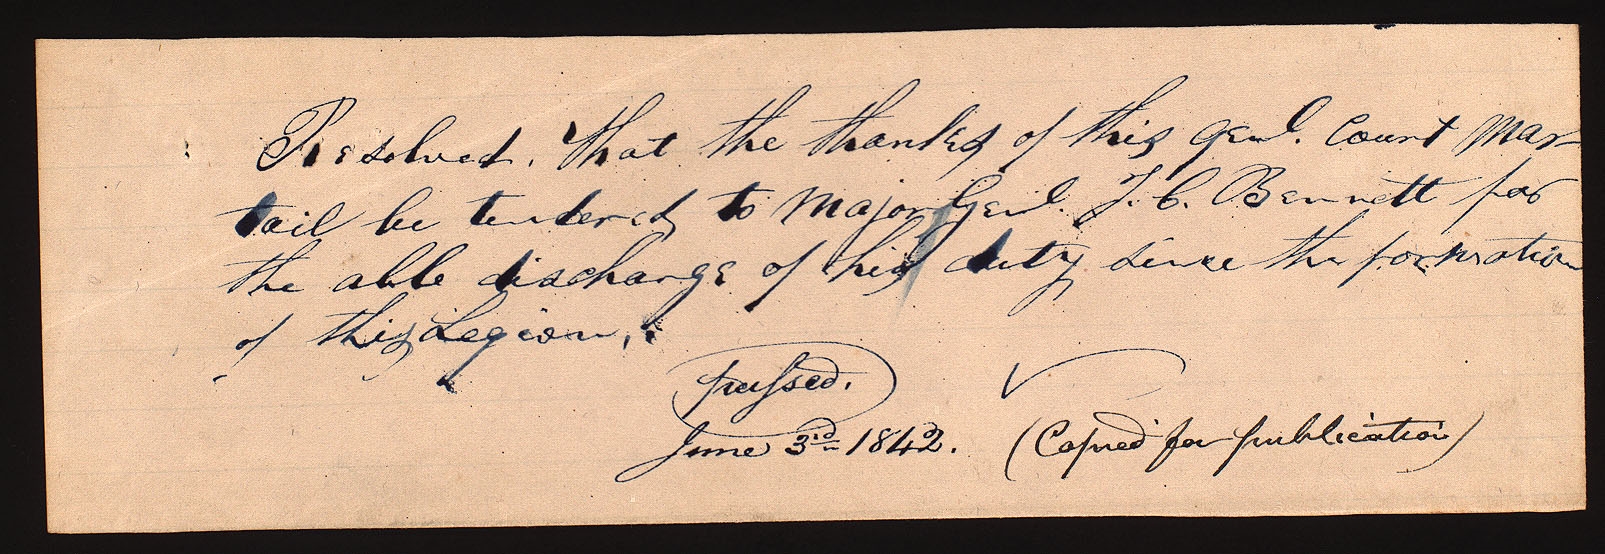 Resolved. That the thanks of this Genl. Court Mar-
tail be tendered to Major Genl. J. C. Bennett for
the able discharge of his duty since the formation
of this Legion,
passed.
June 3rd 1842. (Copied for publication)